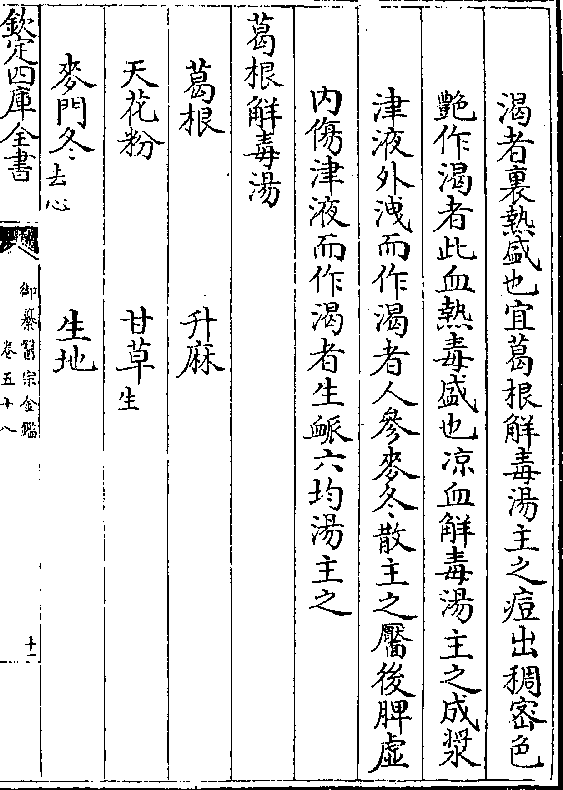 渴者裏熱盛也宜葛根解毒湯主之痘出稠密色
艷作渴者此血熱毒盛也凉血解毒湯主之成漿
津液外洩而作渴者人參麥冬散主之靨後脾虛
内傷津液而作渴者生脈六均湯主之
葛根解毒湯
葛根 升麻
天花粉 甘草生
麥門冬去心 生地
欽定四庫全書
御纂醫宗金鑑
卷五十八
十一